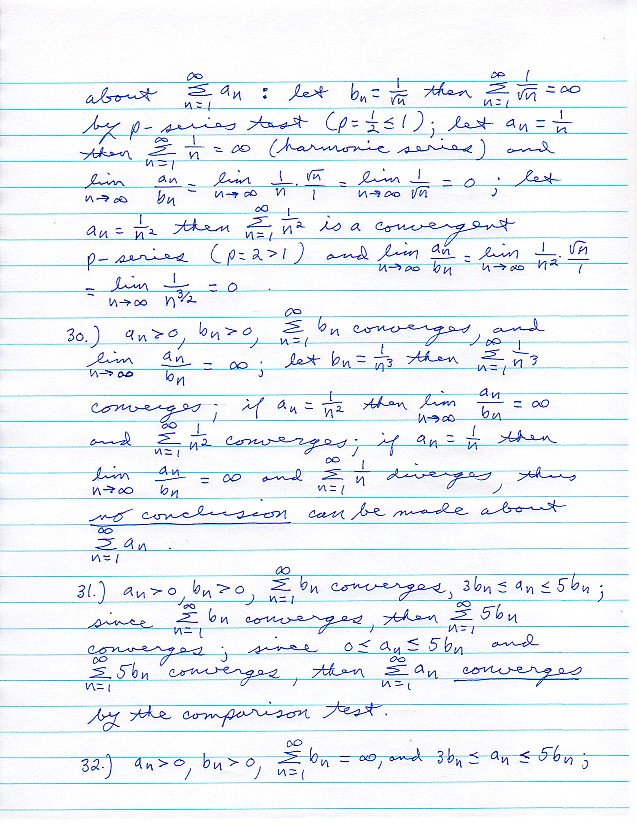 about ∞Σn=1 an : let bn = 1/√n then ∞Σn=1 1/√n = ∞
by p-series test (p = 1/2 ≤ 1); let an = 1/n
then ∞Σn=1 1/n = ∞ (harmonic series) and
lim n→∞ an/bn = lim n→∞ 1/n · √n/1 = lim n→∞ 1/√n = 0 ; let
an = 1/n² then ∞Σn=1 1/n² is a convergent
p-series (p = 2 > 1) and lim n→∞ an/bn = lim n→∞ 1/n² · √n/1
= lim n→∞ 1/n^3/2 = 0 .
30.) an > 0, bn > 0, ∞Σn=1 bn converges, and
lim n→∞ an/bn = ∞ ; let bn = 1/n³ then ∞Σn=1 1/n³
converges; if an = 1/n² then lim n→∞ an/bn = ∞
and ∞Σn=1 1/n² converges; if an = 1/n then
lim n→∞ an/bn = ∞ and ∞Σn=1 1/n diverges, thus
no conclusion can be made about
∞Σn=1 an .
31.) an > 0, bn > 0, ∞Σn=1 bn converges, 3bn ≤ an ≤ 5bn ;
since ∞Σn=1 bn converges, then ∞Σn=1 5bn
converges ; since 0 ≤ an ≤ 5bn and
∞Σn=1 5bn converges, then ∞Σn=1 an converges
by the comparison test.
32.) an > 0, bn > 0, ∞Σn=1 bn = ∞, and 3bn ≤ an ≤ 5bn ;